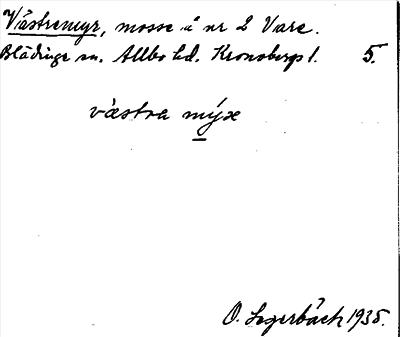 Västremyr, mosse å nr 2 Vare.
Blädinge sn. Allbo hd. Kronobergs l. 5.
västra mýr
O. Lagerbäck 1935.